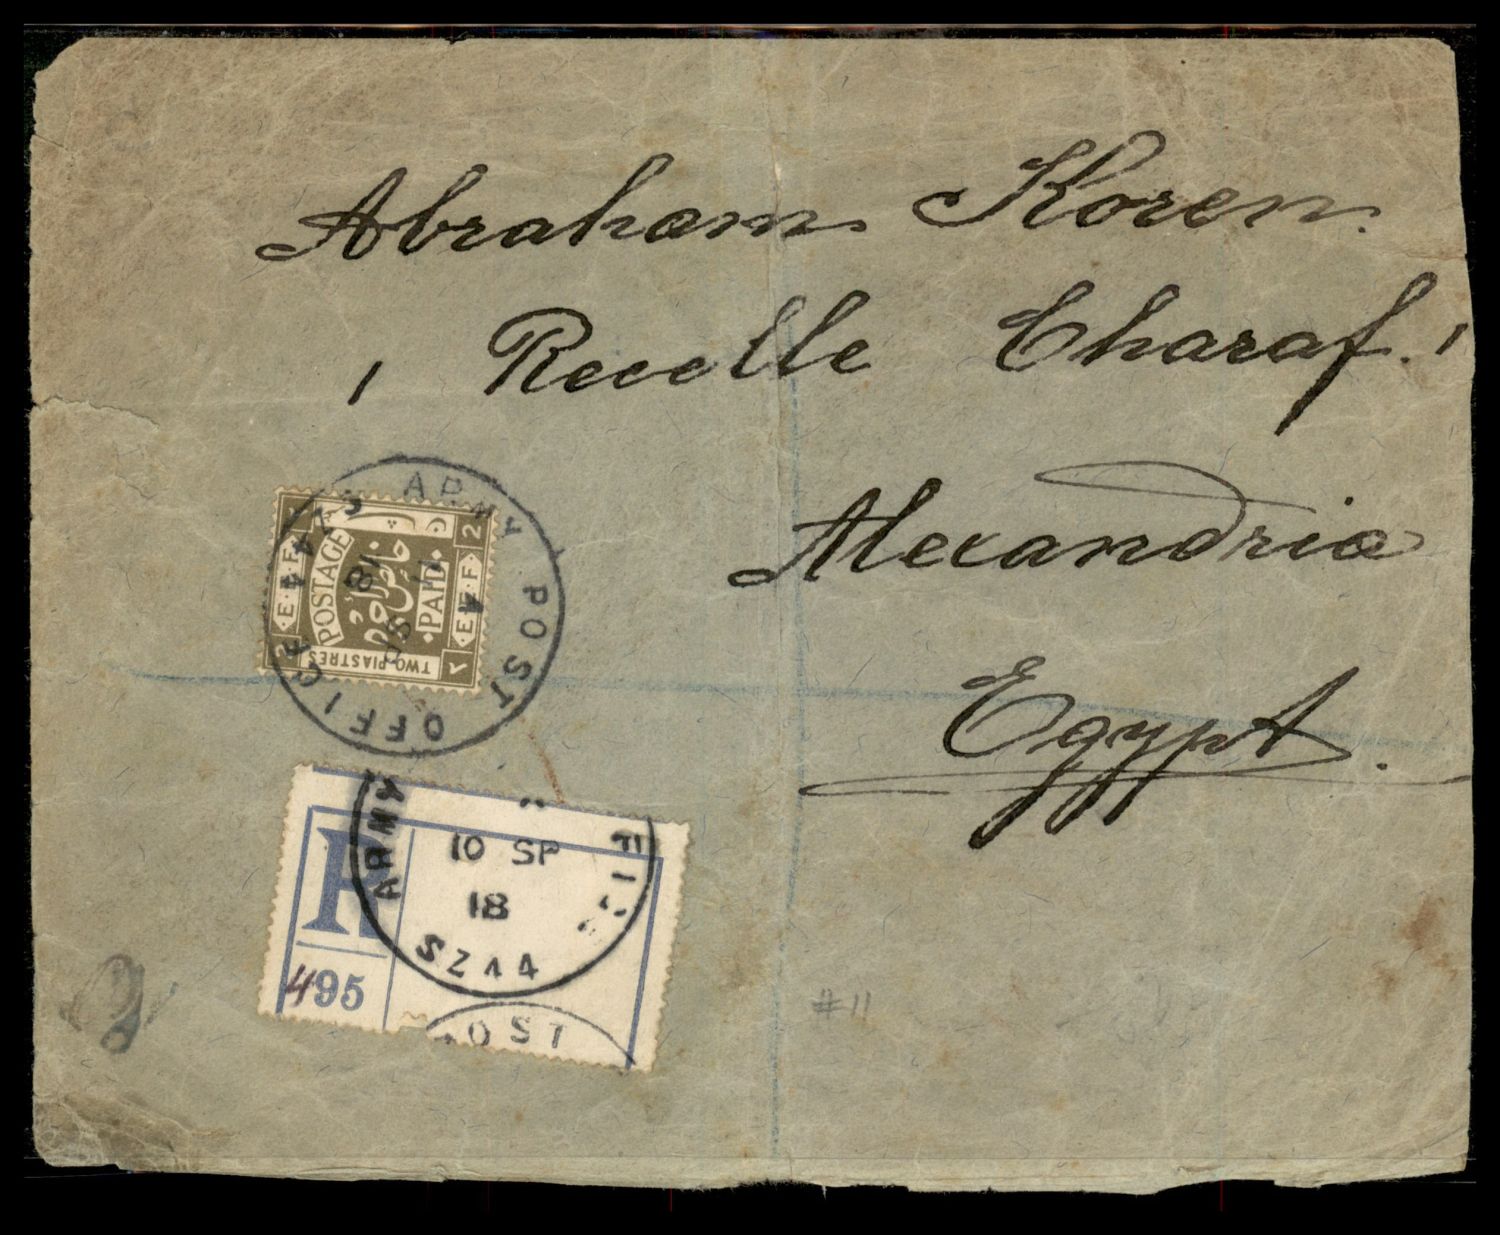 Abraham Koren.
1 Recelle Charaf. 1
Alexandria
Egypt.
ARMY POST OFFICE SZ44
18
E.E.F.
POSTAGE
PAID
E.E.F.
2
TWO PIASTRES
٢
R
495
ARMY
10 SP
18
SZ44
OST
#11